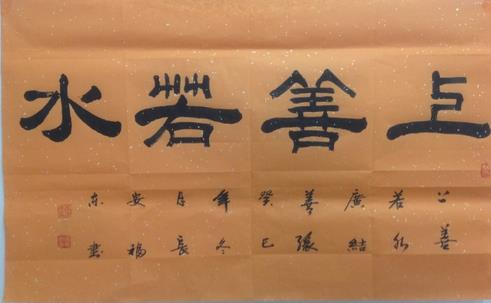 上善若水
上善
若水
廣結
善緣
癸巳
年冬
月長
安福
东書